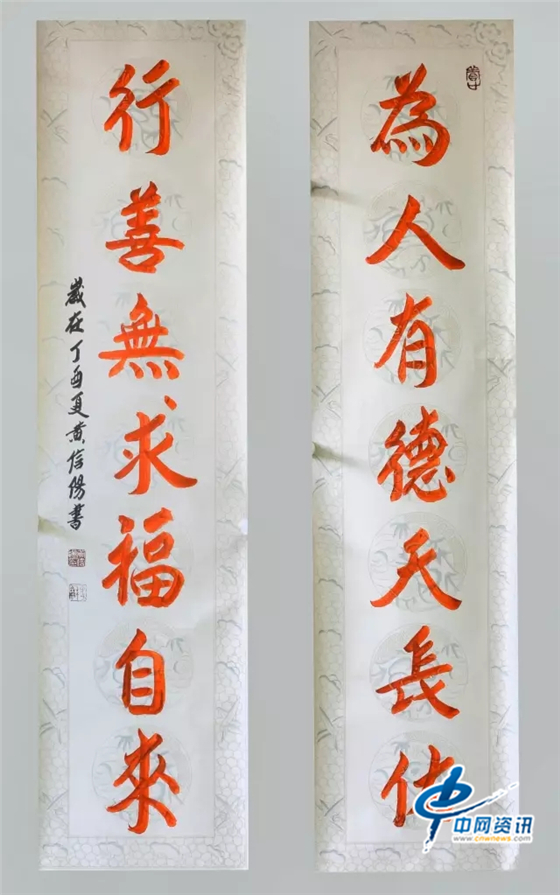 為人有德天長佑
行善無求福自來
歲在丁酉夏黄信陽書
中网资讯
www.cnwnews.com